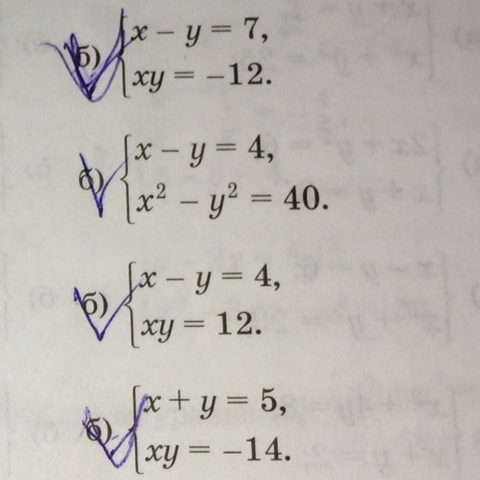 б) x − y = 7,
xy = −12.
б) x − y = 4,
x² − y² = 40.
б) x − y = 4,
xy = 12.
б) x + y = 5,
xy = −14.